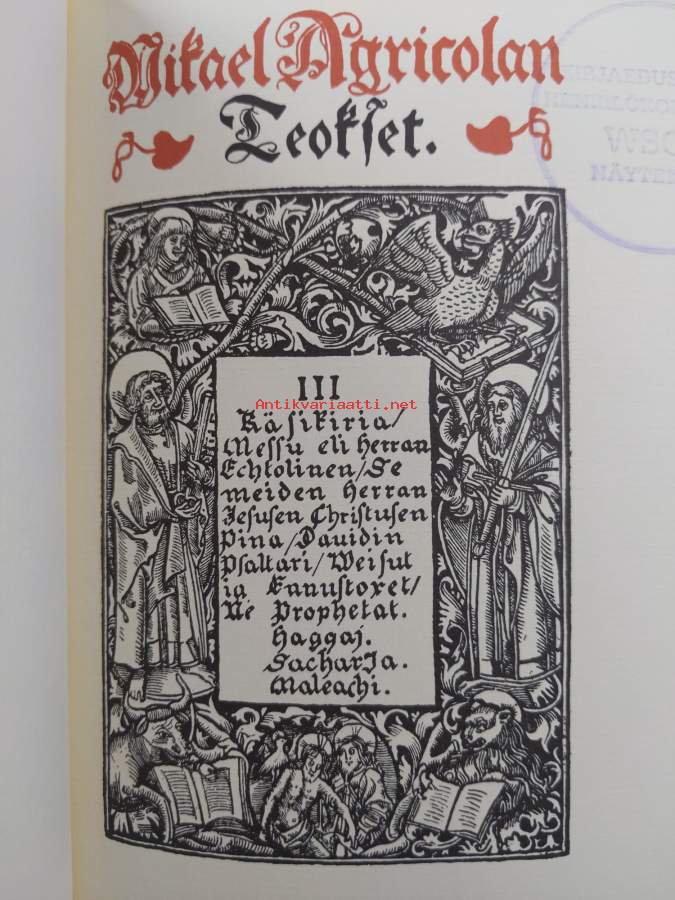 Mikael Agricolan
Teokset.
KIRJAEDUS
HENKILÖKO
WSO
NÄYTE
III
Antikvariaatti.net
Käsikiria/
Messu eli Herran
Echtolinen/Se
meiden Herran
Jesusen Christusen
pina/Dauidin
Psaltari/Weisut
ia Ennustoxet/
Ne Prophetat.
Haggaj.
SacharJa.
Maleachi.